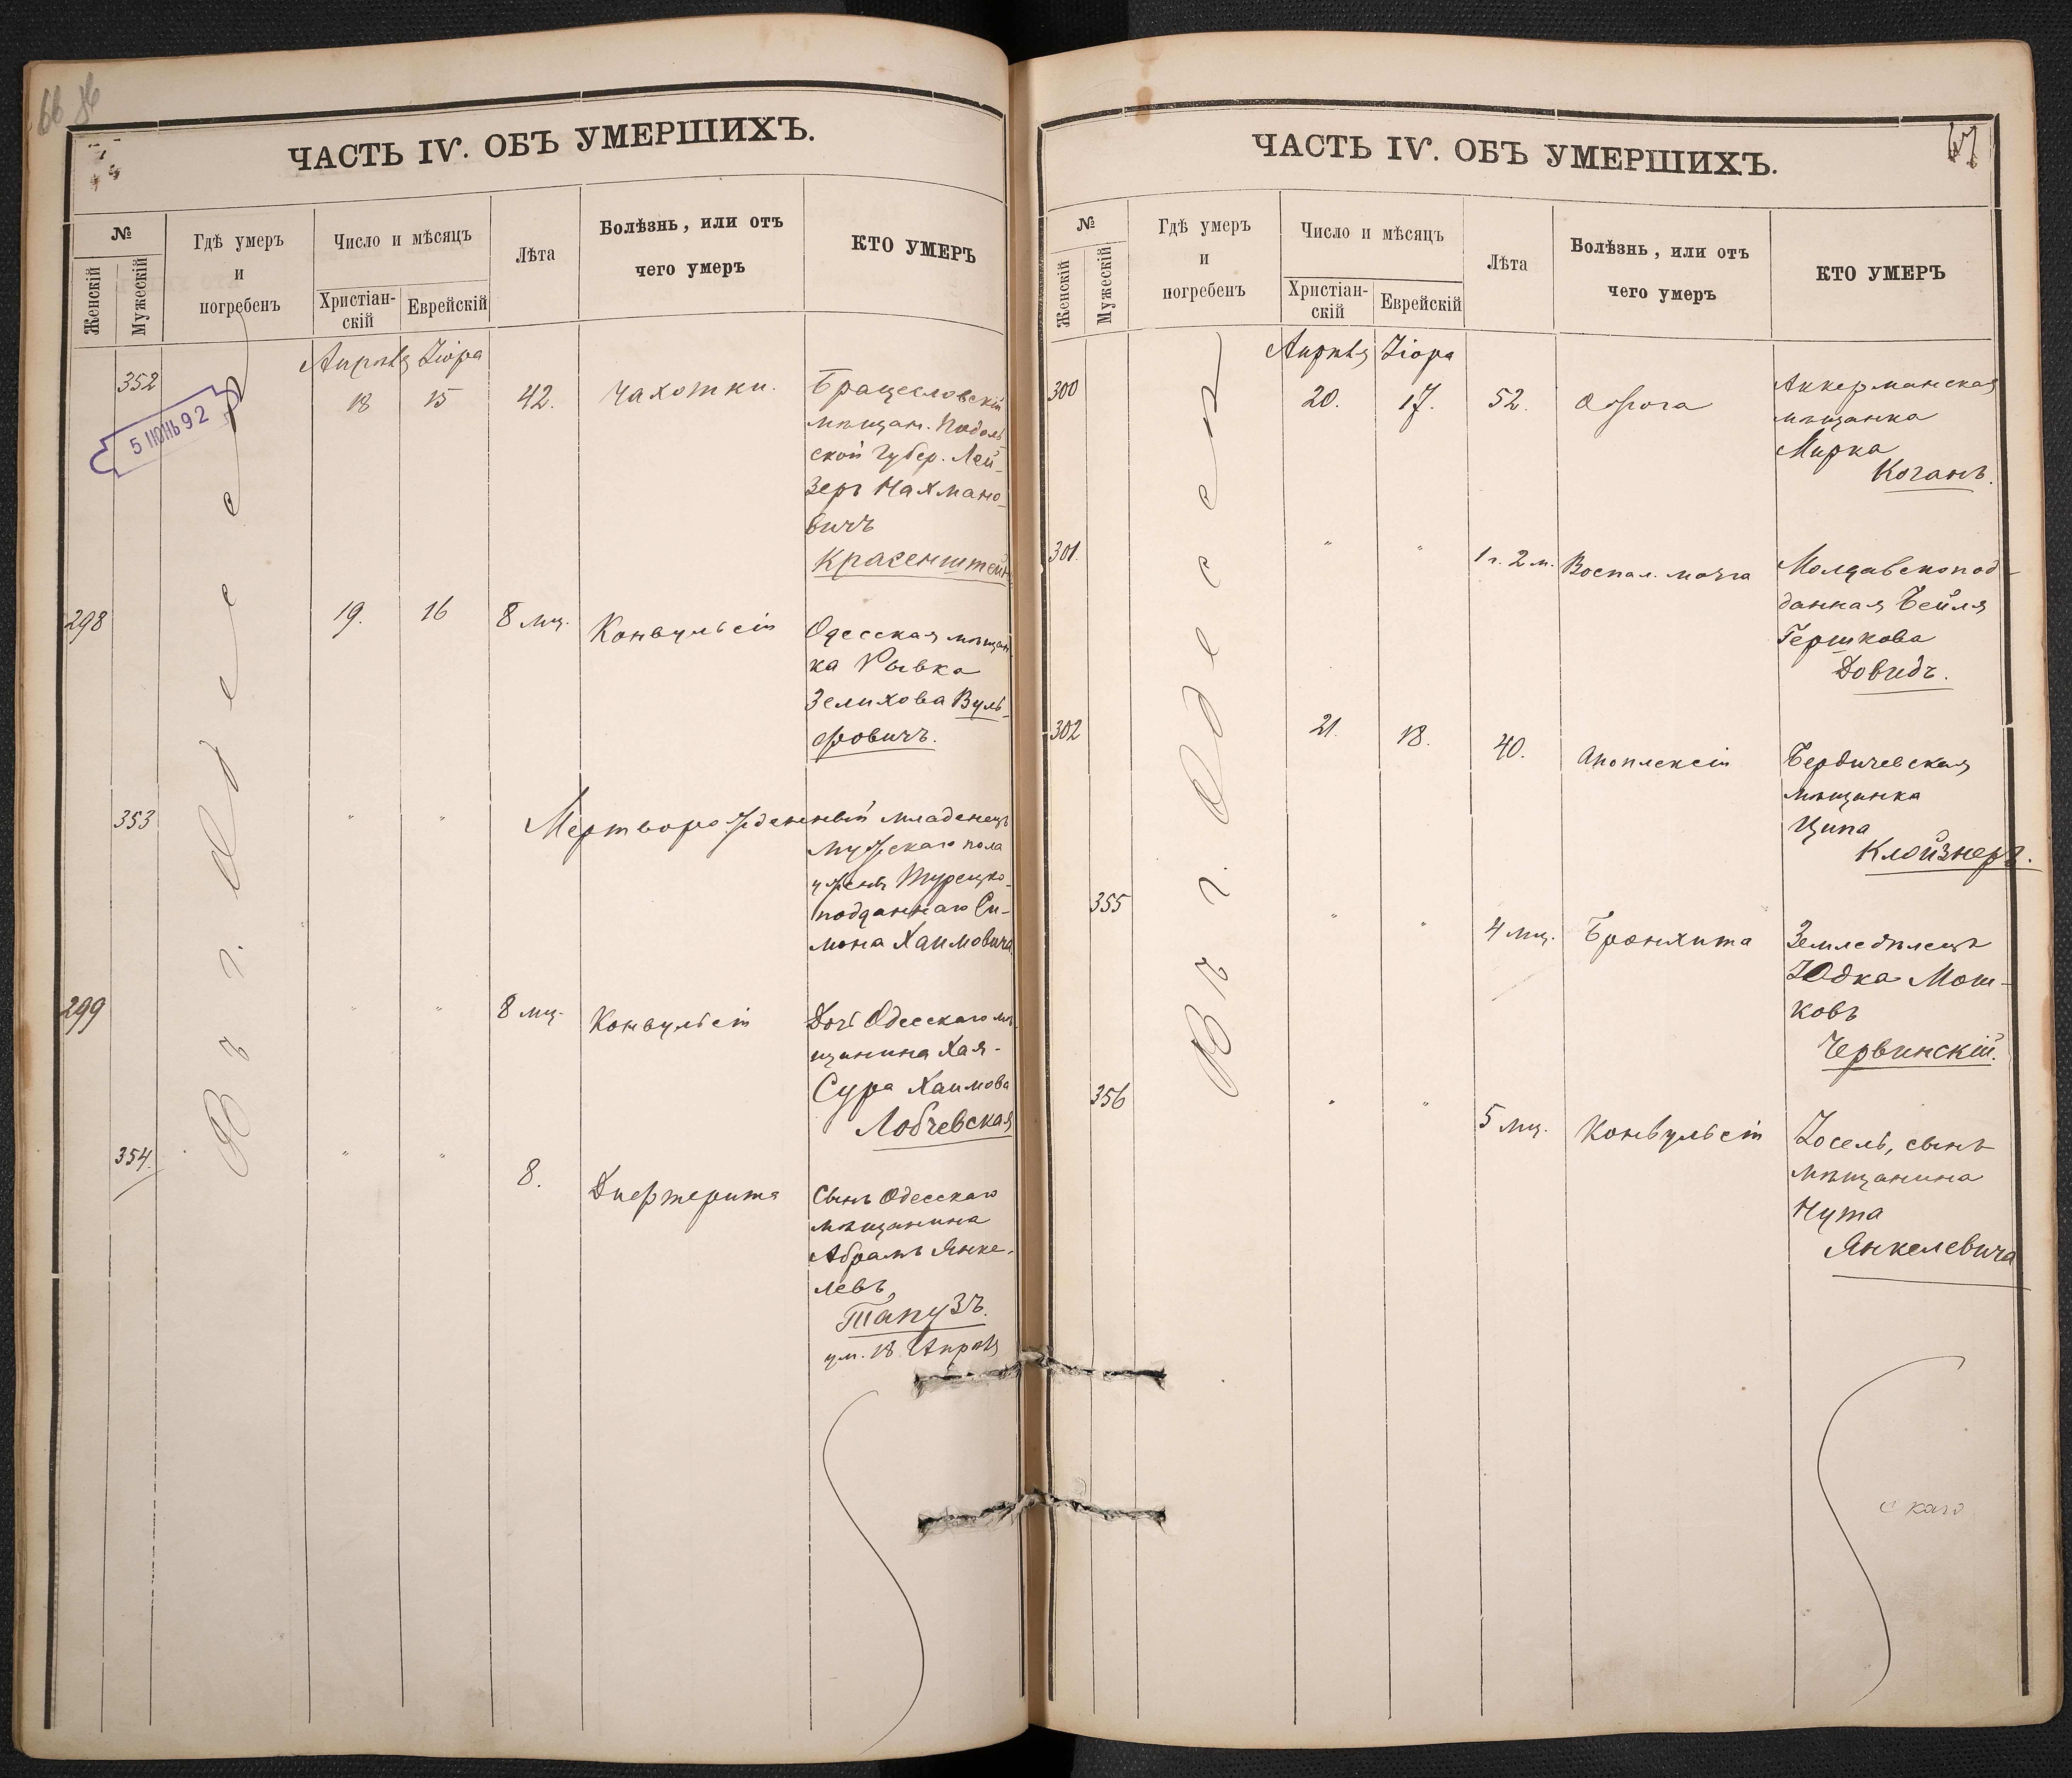 66
ЧАСТЬ IV. ОБЪ УМЕРШИХЪ.
№
Женскій
Мужескій
Гдѣ умеръ
и
погребенъ
Число и мѣсяцъ
Христіан-
скій
Еврейскій
Лѣта
Болѣзнь, или отъ
чего умеръ
КТО УМЕРЪ
5 ІЮНЬ 92
Въ г. Одессѣ
Апрѣля Ііора
352
18
15
42.
Чахотки.
Брацславскій
мѣщан. Подоль-
ской Губер. Лей-
зеръ Нахмано-
вичъ
Красенштейн
298
19.
16
8 мц.
Конвульсіи
Одесская мѣщан-
ка Рывка
Зелихова Вуль-
фовичъ.
353
"
"
Мертворожденный младенецъ
мужскаго пола
у жены Турецко-
подданнаго Си-
мона Хаимовича
299
"
"
8 мц.
Конвульсіи
Дочь Одесскаго мѣ-
щанина Хая-
Сура Хаимова
Лобчевская
354.
"
"
8.
Дифтерита
Сынъ Одесскаго
мѣщанина
Абрамъ Янке-
левъ
Тапузъ.
ум. 18 Апрѣля
67
ЧАСТЬ IV. ОБЪ УМЕРШИХЪ.
№
Женскій
Мужескій
Гдѣ умеръ
и
погребенъ
Число и мѣсяцъ
Христіан-
скій
Еврейскій
Лѣта
Болѣзнь, или отъ
чего умеръ
КТО УМЕРЪ
Въ г. Одессѣ
Апрѣля Ііора
300
20.
17.
52.
Аккерманская
мѣщанка
Мирка
Коганъ.
301.
"
"
1 г. 2 м.
Воспал. мозга
Молдавскопод-
данная Бейля
Гершкова
Довидъ.
302
21.
18.
40.
Апоплексіи
Бердичевская
мѣщанка
Ципа
Клойзнеръ.
355
"
"
4 мц.
Бронхита
Земледѣлецъ
Юдка Мош-
ковъ
Червинскій.
356
"
"
5 мц.
Конвульсіи
Іосель, сынъ
мѣщанина
Нута
Янкелевича
скаго